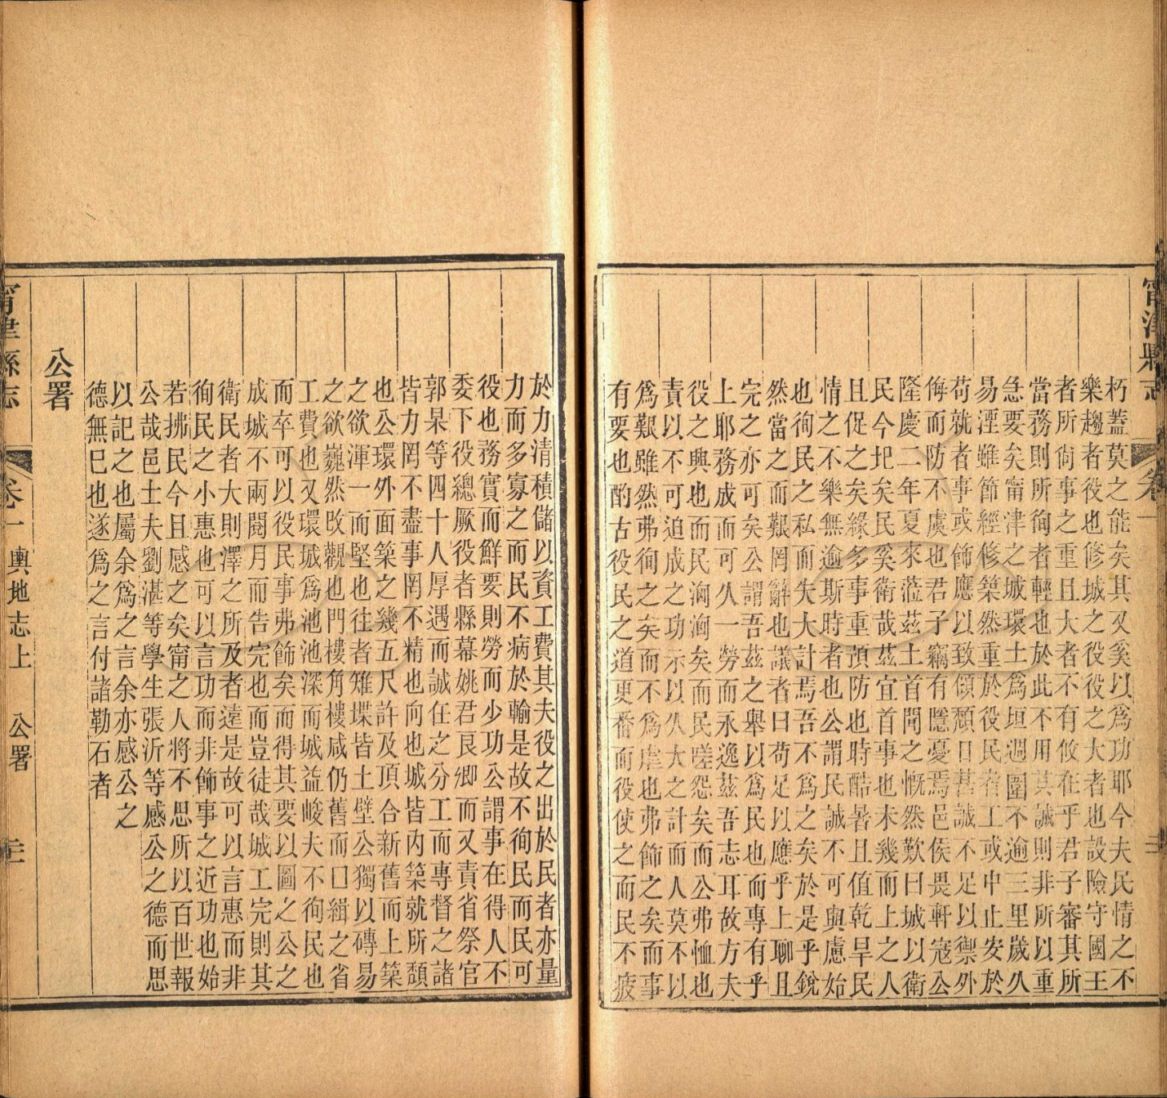 甯津縣志
卷一
朽蓋莫之能矣其又奚以爲功耶今夫民情之不
樂趨者役也修城之役役之大者也設險守國王
者所尙事之重且大者不有攸在乎君子審其所
當務則所徇者輕也於此不用其誠則非所以重
急要矣甯津之城環土爲垣週圍不逾三里歲久
易湮雖節經修築然重於役民者工或中止安於
苟就者事或飾應以致傾頹日甚誠不足以禦外
侮而防不虞也君子竊有隱憂焉邑侯畏軒寇公
隆慶二年夏來蒞茲土首閱之慨然歎曰城以衛
民今圯矣民奚衛哉茲宜首事也未幾而上之人
且促之矣緣多事重預防也時酷暑且值乾旱民
情之不樂無逾斯時者也公謂民誠不可與慮始
也徇民之私而失大計焉吾不爲之矣於是乎銳
然當之而艱罔辭也議者曰苟足以應乎上聊且
完之亦可矣公謂吾茲之舉以爲民也而專有乎
上耶務成而可久一勞而永逸茲吾志耳故方夫
役之興也而民洶洶矣而民嗟怨矣而公弗恤也
責以不可追成之功示以久大之計而人莫不以
爲艱雖然弗徇之矣而不爲虐也弗飾之矣而事
有要也酌古役民之道更番而役使之而民不疲
於力清積儲以資工費其夫役之出於民者亦量
力而多寡之而民不病於輸是故不徇民而民可
役也務實而鮮要則勞而少功公謂事在得人不
委下役總厥役者縣幕姚君良卿而又責省祭官
郭杲等四十人厚遇而誠任之分工而專督之諸
皆力罔不盡事罔不精也向也城皆內築就所頹
也公環外面築之幾五尺許及頂合新舊而上築
之欲渾一而堅也往者雉堞皆土壁公獨以磚易
之欲巍然改觀也門樓角樓咸仍舊而口緝之省
工費也又環城爲池池深而城益峻夫不徇民也
而卒可以役民事弗飾矣而得其要以圖之公之
成城不兩閱月而告完也而豈徒哉城工完則其
衛民者大則澤之所及者遠是故可以言惠而非
徇民之小惠也可以言功而非飾事之近功也始
若拂民今且感之矣甯之人將不思所以百世報
公哉邑士夫劉湛等學生張沂等感公之德而思
以記之也屬余爲之言余亦感公之
德無巳也遂爲之言付諸勒石者
公署
甯津縣志
卷一 輿地志上 公署